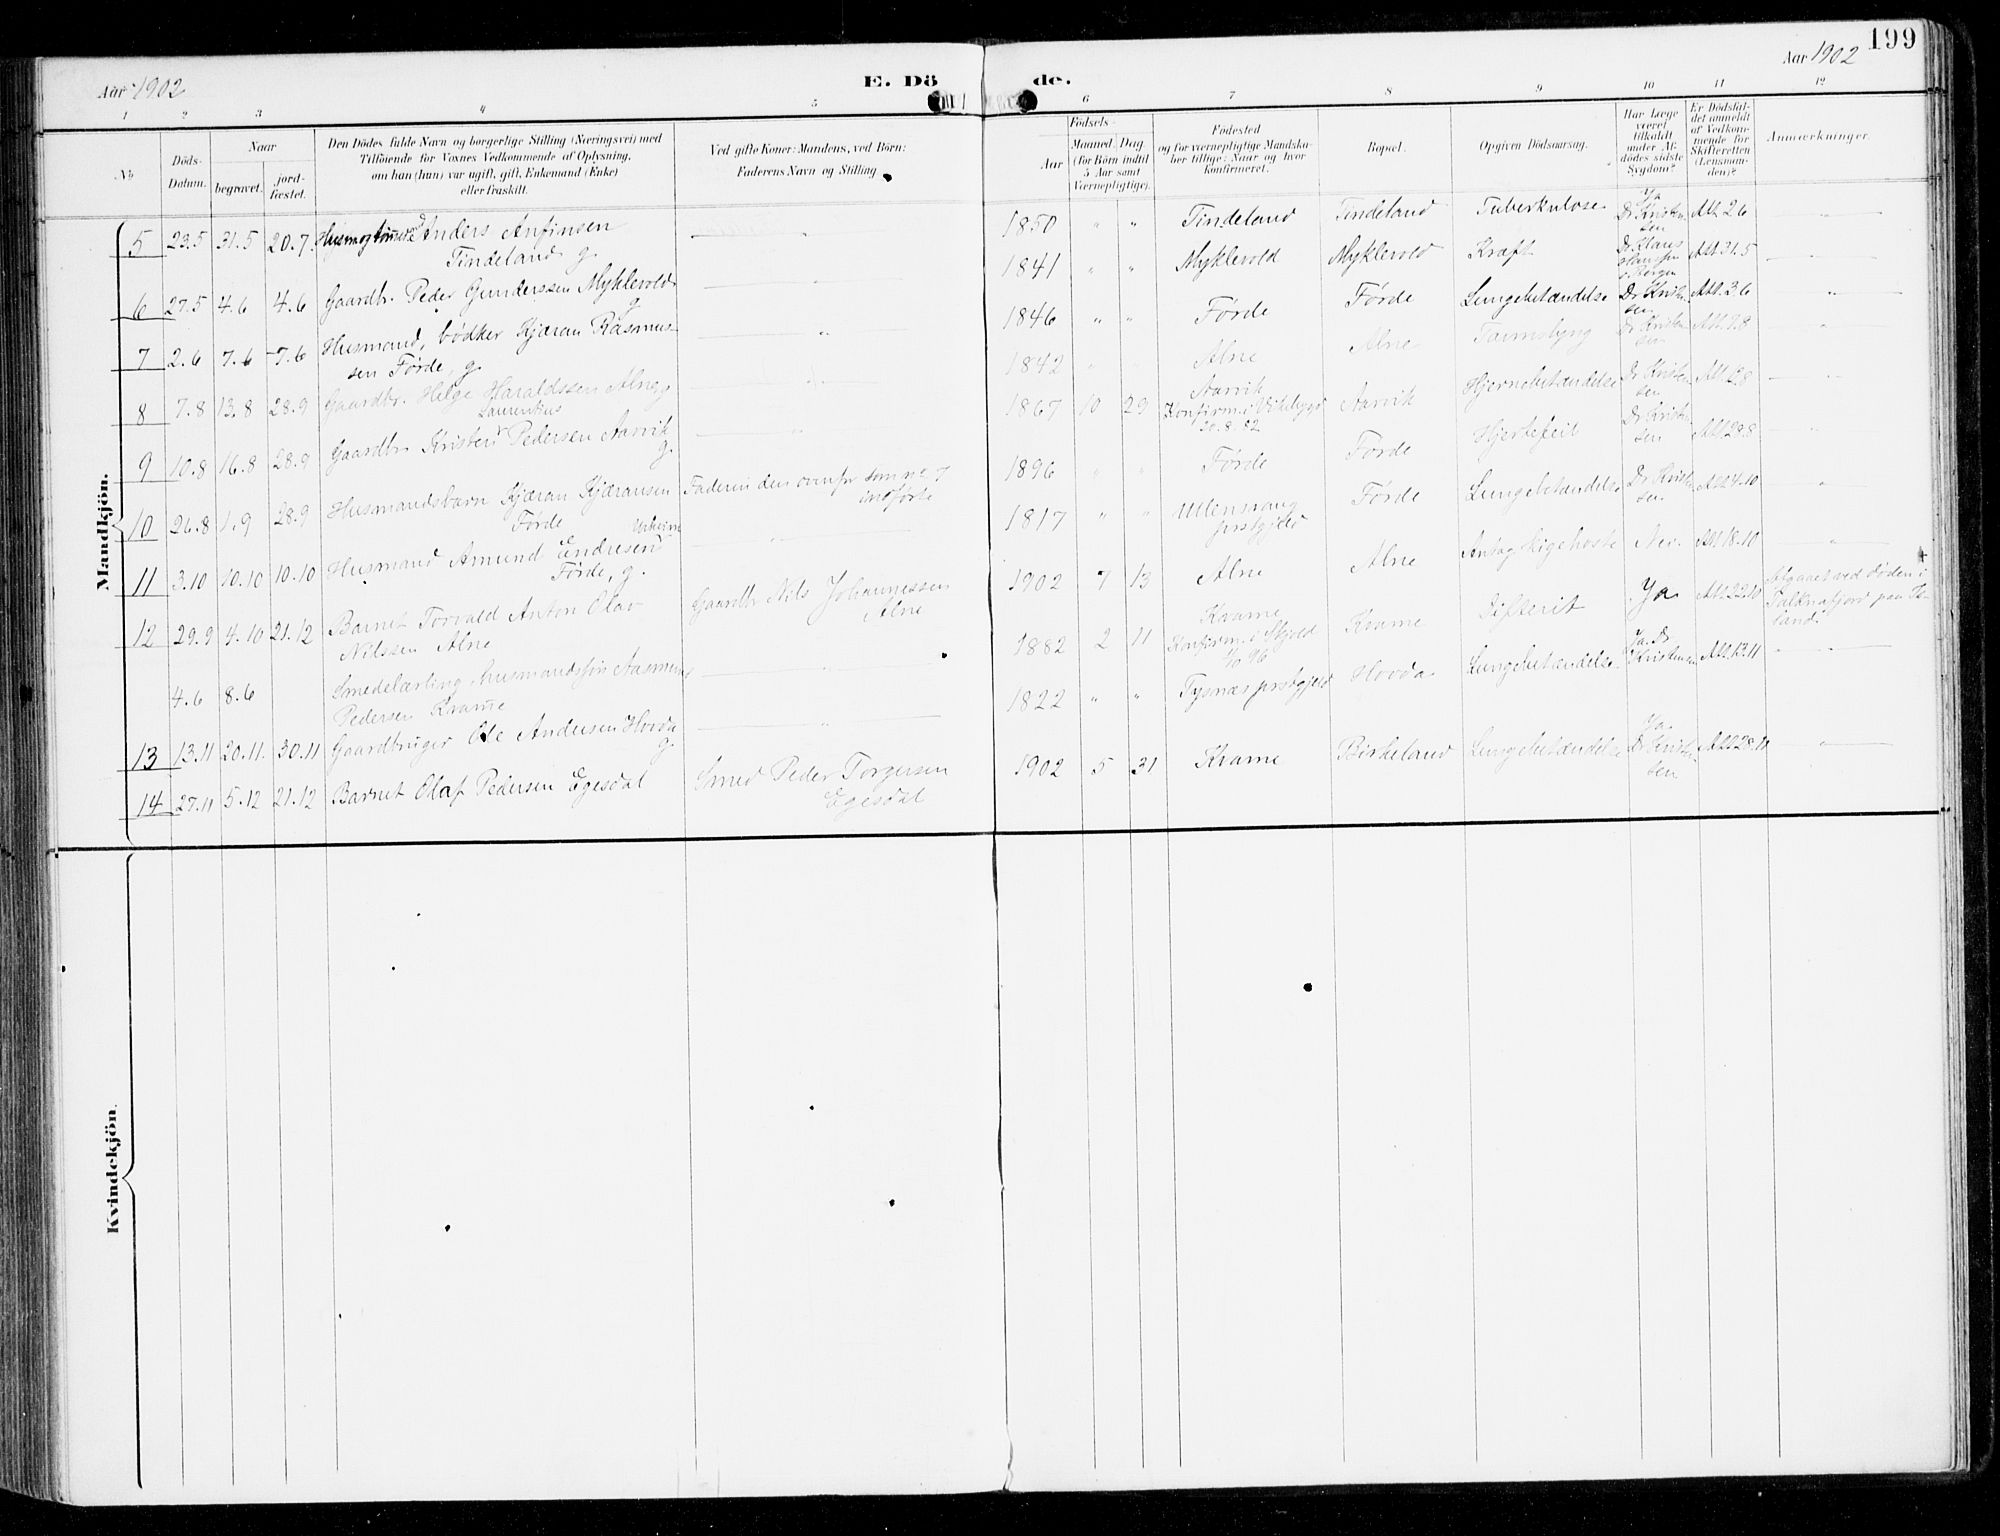 199
Aar 1902
E. Dö
de.
Aar 1902
1 2 3 4 5 6 7 8 9 10 11 12
No.
Döds-
Datum.
Naar
begravet.
jord-
fæstet.
Den Dödes fulde Navn og borgerlige Stilling (Næringsvei) med
Tilföiende for Voxnes Vedkommende af Oplysning,
om han (hun) var ugift, gift, Enkemand (Enke)
eller fraskilt.
Ved gifte Koner: Mandens, ved Börn:
Faderens Navn og Stilling.
Födsels-
Aar
Maaned. Dag.
(for Börn indtil
5 Aar samt
Værnepligtige).
Födested
og for værnepligtige Mandska-
ber tillige: Naar og hvor
konfirmeret.
Bopæl.
Opgiven Dödsaarsag.
Har Læge
været
tilkaldt
under Af-
dödes sidste
Sygdom?
Er Dödsfal-
det anmeldt
af Vedkom-
mende for
Skifteretten
(Lensman-
den)?
Anmærkninger.
Mandkjön.
5 23.5 31.5 20.7. Anders Anfinsen
Tindeland g. 1850 " " Tindeland Tindeland Tuberkulose Ja Dr Kristen-
sen Att 2.6
6 27.5 4.6 4.6 Gaardbr. Peder Gunderssen Myklevold
g. 1841 " " Myklevold Myklevold Kræft Dr Klaus
Hanssen
Bergen Att 31.5
7 2.6 7.6 7.6 Husmand, bødker Kjæran Rasmus-
sen Førde, g. 1846 " " Førde Førde Lungebetændelse Dr Kristen-
sen Att. 3.6
8 7.8 13.8 28.9 Gaardbr. Helge Haraldssen Alne g 1842 " Alne Alne Dr Kristen-
sen Att 9.8
9 10.8 16.8 28.9 Gaardbr Kristen Laurentius Pedersen Aarvik
g. 1867 10 29 Aarvik
Konfirm. i Vikebygd
.8.82 Aarvik Hjernebetændelse Dr Kristen-
sen Att 12.8
10 26.8 1.9 28.9 Husmandsbarn Kjæran Kjæransen
Førde Faderen den ovenfor som no 7
indførte 1896 " " Førde Førde Hjertefeil Dr Kristen-
sen Att 29.8
11 3.10 10.10 10.10 Husmand Amund Endresen
Førde, g. 1817 " " Ullensvang
prstgjeld Førde Lungebetændelse Dr Kristen-
sen Att 4.10
12 29.9 4.10 21.12 Barnet Torvald Anton Olav
Nilssen Alne Gaardbr Nils Johannessen
Alne 1902 7 13 Alne Alne Antag. Kigehoste Nei. Att 18.10
4.6 8.6 Smedelærling, husmandssøn Aasmund
Pedersen Kvame 1882 2 11 Kvame
Konfirm. i Skjold
96 Kvame Difterit Ja Att 22.10 Afgaaet ved døden i
Talknafjord paa Is-
land.
13 13.11 20.11. 30.11 Gaardbruger Ole Andersen Hovda
g. 1822 " " Tysnæs prstgjeld Hovda Lungebetændelse Ja. Dr
Kristensen Att. 13.11
14 27.11 5.12 21.12 Barnet Olaf Pedersen Egesdal Smed Peder Torgersen
Egesdal 1902 5 31 Kvame Birkeland Lungebetændelse Ja.
Dr Kristen-
sen Att 28.11
Kvindekjön.